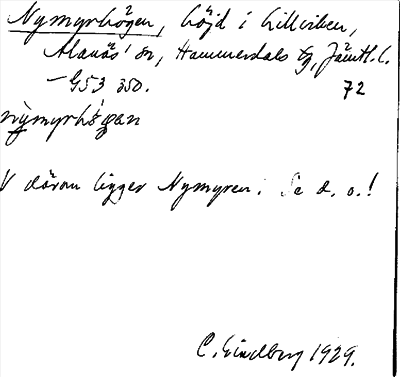 Nymyrhögen, höjd i Lillviken,
Alanäs' sn, Hammerdals tg, Jämtl. l.
– G53 350. 72
V däron ligger Nymyren. Se d. o.!
C. Lindberg 1929.